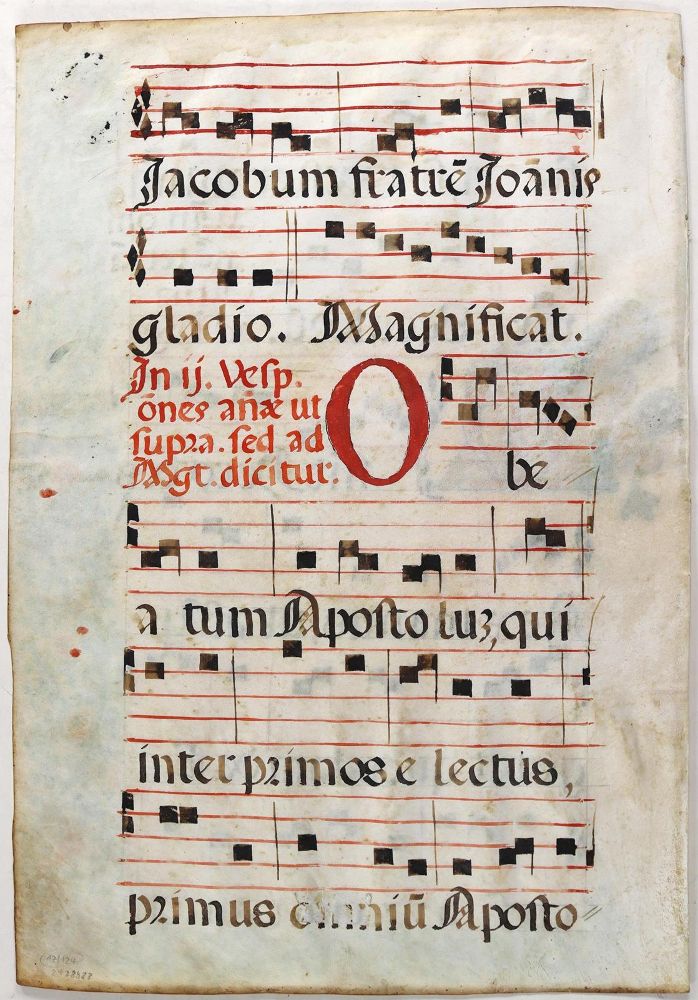 Jacobum fratrē Joānis
gladio. Magnificat.
In ij. Vesp.
ōnes añæ ut
supra. sed ad
Mgt. dicitur.
O
be
a tum Aposto luʒ, qui
inter primos e lectus,
primus omniū Aposto=